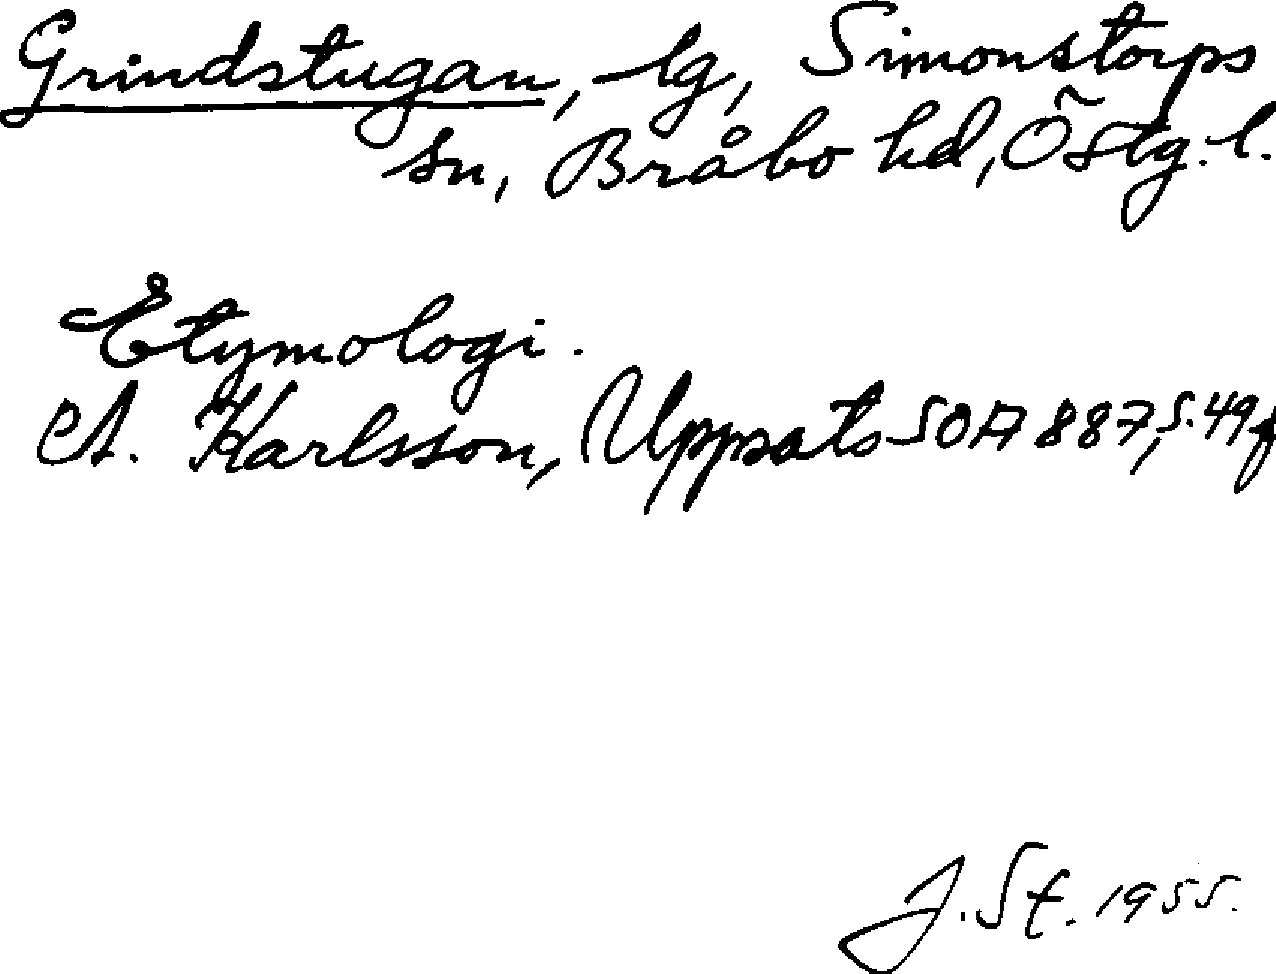 Grindstugan, lg, Simonstorps
sn, Bråbo hd, Östg. l.
Etymologi.
A. Karlsson, Uppsats SOA 887, s. 49f
J. St. 1955.